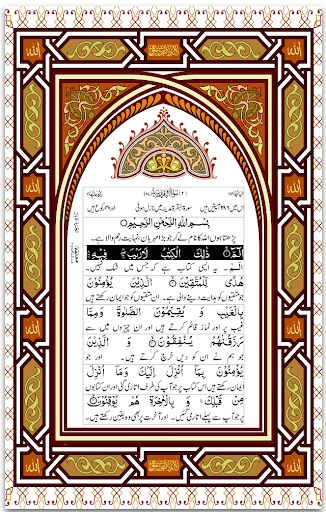 اس میں ۲۸۶ آیتیں ہیں سورۃ البقرۃ مدینہ میں نازل ہوئی اور ۴۰ رکوع ہیں
بِسْمِ اللّٰهِ الرَّحْمٰنِ الرَّحِیْمِ
اللہ کا نام لے کر جو بڑا مہربان، نہایت رحم والا ہے۔
الٓمّٓ ذٰلِكَ الْكِتٰبُ لَا رَیْبَ فِیْهِ
الٓمّٓ۔ یہ ایسی کتاب ہے کہ جس میں شک نہیں۔
هُدًی لِّلْمُتَّقِیْنَ الَّذِیْنَ یُؤْمِنُوْنَ
جو متقیوں کو ہدایت دینے والی ہے۔ ان متقیوں کو جو ایمان رکھتے ہیں
بِالْغَیْبِ وَ یُقِیْمُوْنَ الصَّلٰوةَ وَمِمَّا
غیب پر اور نماز قائم کرتے ہیں اور ان چیزوں میں سے
رَزَقْنٰهُمْ یُنْفِقُوْنَ وَ الَّذِیْنَ
جو ہم نے ان کو دیں خرچ کرتے ہیں۔ اور جو
یُؤْمِنُوْنَ بِمَاۤ اُنْزِلَ اِلَیْكَ وَمَاۤ اُنْزِلَ
ایمان رکھتے ہیں اس کتاب پر جو آپ کی طرف اتاری گئی اور ان کتابوں
مِنْ قَبْلِكَ وَ بِالْاٰخِرَةِ هُمْ یُوْقِنُوْنَ
پر جو آپ سے پہلے اتاری گئیں۔ اور آخرت پر بھی وہ یقین رکھتے ہیں۔
الله
الله
الله
الله
الله
الله